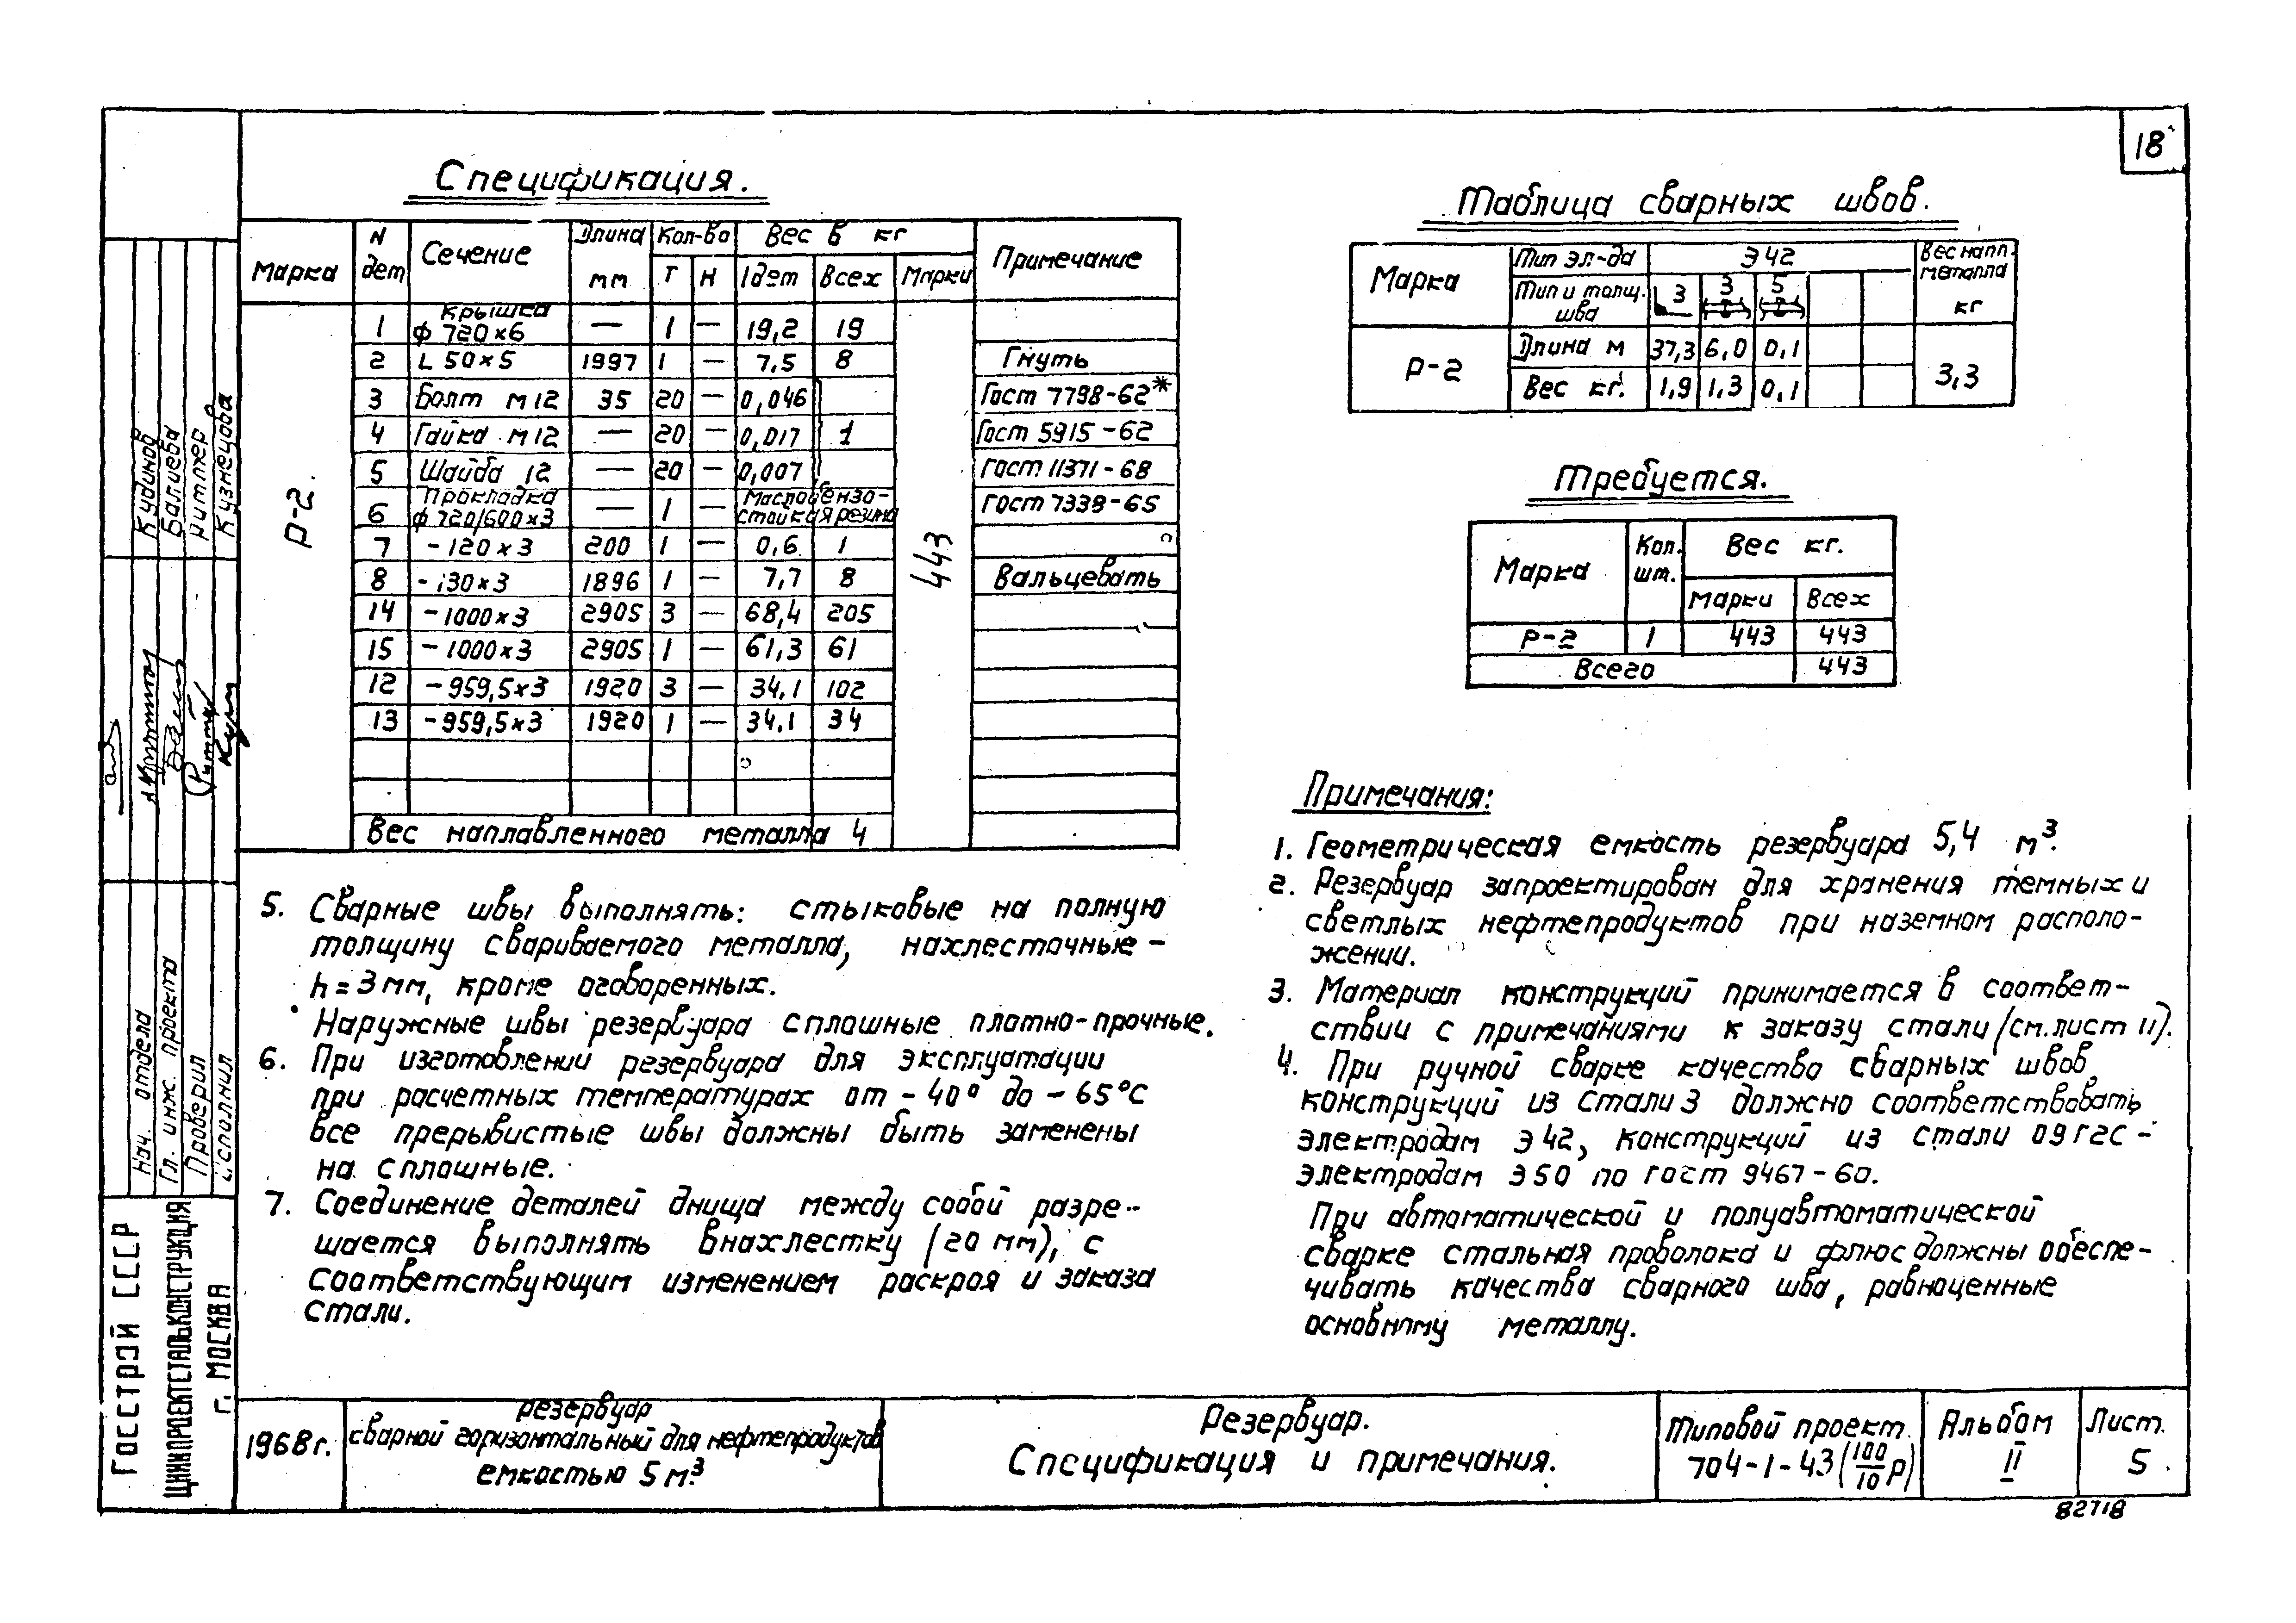 18
Спецификация.
Марка | N дет | Сечение | Длина мм | Кол-во Т Н | Вес в кг 1дет Всех Марки | Примечание
Р-2.
1 | Крышка ф 720×6 | — | 1 | — | 19,2 | 19
2 | L 50×5 | 1997 | 1 | — | 7,5 | 8 | Гнуть
3 | Болт М12 | 35 | 20 | — | 0,046 | Гост 7798-62*
4 | Гайка М12 | — | 20 | — | 0,017 | 1 | Гост 5915-62
5 | Шайба 12 | — | 20 | — | 0,007 | Гост 11371-68
6 | Прокладка ф 720/600×3 | — | 1 | — | Маслобензо-стойкая резина | Гост 7338-65
7 | -120×3 | 200 | 1 | — | 0,6 | 1
8 | -130×3 | 1896 | 1 | — | 7,7 | 8 | Вальцевать
14 | -1000×3 | 2905 | 3 | — | 68,4 | 205
15 | -1000×3 | 2905 | 1 | — | 61,3 | 61
12 | -959,5×3 | 1920 | 3 | — | 34,1 | 102
13 | -959,5×3 | 1920 | 1 | — | 34.1 | 34
443
Вес наплавленного металла 4
Таблица сварных швов.
Марка | Тип эл-да | Э42 | Вес напл. металла кг
Тип и толщ. шва | 3 | 3 | 5
Р-2 | Длина м | 37,3 | 6,0 | 0,1 | 3,3
Вес кг. | 1,9 | 1,3 | 0,1
Требуется.
Марка | Кол. шт. | Вес кг.
Марки | Всех
Р-2 | 1 | 443 | 443
Всего | 443
Примечания:
1. Геометрическая емкость резервуара 5,4 м³.
2. Резервуар запроектирован для хранения темных и
светлых нефтепродуктов при наземном располо-
жении.
3. Материал конструкций принимается в соответ-
ствии с примечаниями к заказу стали (см. лист 11).
4. При ручной сварке качество сварных швов
конструкций из стали 3 должно соответствовать
электродам Э42, конструкций из стали 09Г2С -
электродам Э50 по гост 9467-60.
При автоматической и полуавтоматической
сварке стальная проволока и флюс должны обеспе-
чивать качества сварного шва, равноценные
основному металлу.
5. Сварные швы выполнять: стыковые на полную
толщину свариваемого металла, нахлесточные -
h = 3 мм, кроме оговоренных.
Наружные швы резервуара сплошные плотно-прочные.
6. При изготовлении резервуара для эксплуатации
при расчетных температурах от -40° до -65°С
все прерывистые швы должны быть заменены
на сплошные.
7. Соединение деталей днища между собой разре-
шается выполнять внахлестку (20 мм), с
соответствующим изменением раскроя и заказа
стали.
Кудинов
Балиева
Риттер
Кузнецова
Нач. отдела
Гл. инж. проекта
Проверил
Исполнил
Госстрой СССР
ЦНИИПРОЕКТСТАЛЬКОНСТРУКЦИЯ
г. МОСКВА
1968г.
Резервуар
сварной горизонтальный для нефтепродуктов
емкостью 5 м³
Резервуар.
Спецификация и примечания.
Типовой проект
704-1-43(100/10 р)
Альбом
II
Лист.
5
82718